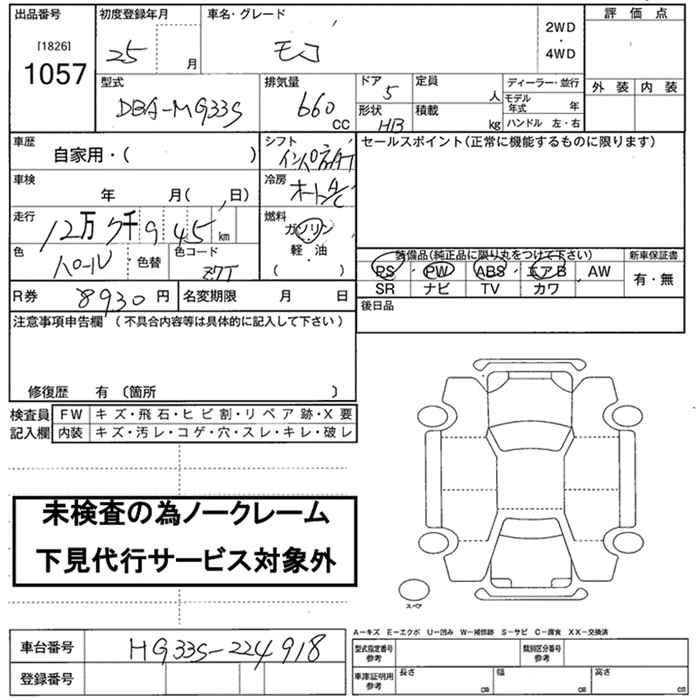 出品番号 初度登録年月 車名・グレード 評価点
[1826] 25 月 モコ 2WD・4WD
1057 外装 内装
型式 排気量 ドア 定員 ディーラー・並行
DBA-MG33S 660 CC 5 人 モデル年式 年
形状 積載 kg ハンドル 左・右
HB
車歴 シフト セールスポイント(正常に機能するものに限ります)
自家用・( ) インパネAT
車検 冷房
年 月( 日) オートA/C
走行 燃料
12万 7千 9 45 km ガソリン
軽・油
色 ・色替 色コード ( )
パール ZKT
装備品(純正品に限り丸をつけて下さい) 新車保証書
PS PW ABS エアB AW 有・無
SR ナビ TV カワ
R券 8930円 名変期限 月 日 後日品
注意事項申告欄 (不具合内容等は具体的に記入して下さい)
修復歴 有 〔箇所 〕
検査員 FW キズ・飛石・ヒビ割・リペア跡・X要
記入欄 内装 キズ・汚レ・コゲ・穴・スレ・キレ・破レ
未検査の為ノークレーム
下見代行サービス対象外
スペア
A-キズ E-エクボ U-凹み W-補修跡 S-サビ C-腐食 XX-交換済
車台番号 HG33S-224918 型式指定番号 参考 類別区分番号 参考
登録番号 車庫証明用 参考 長さ cm 幅 cm 高さ cm